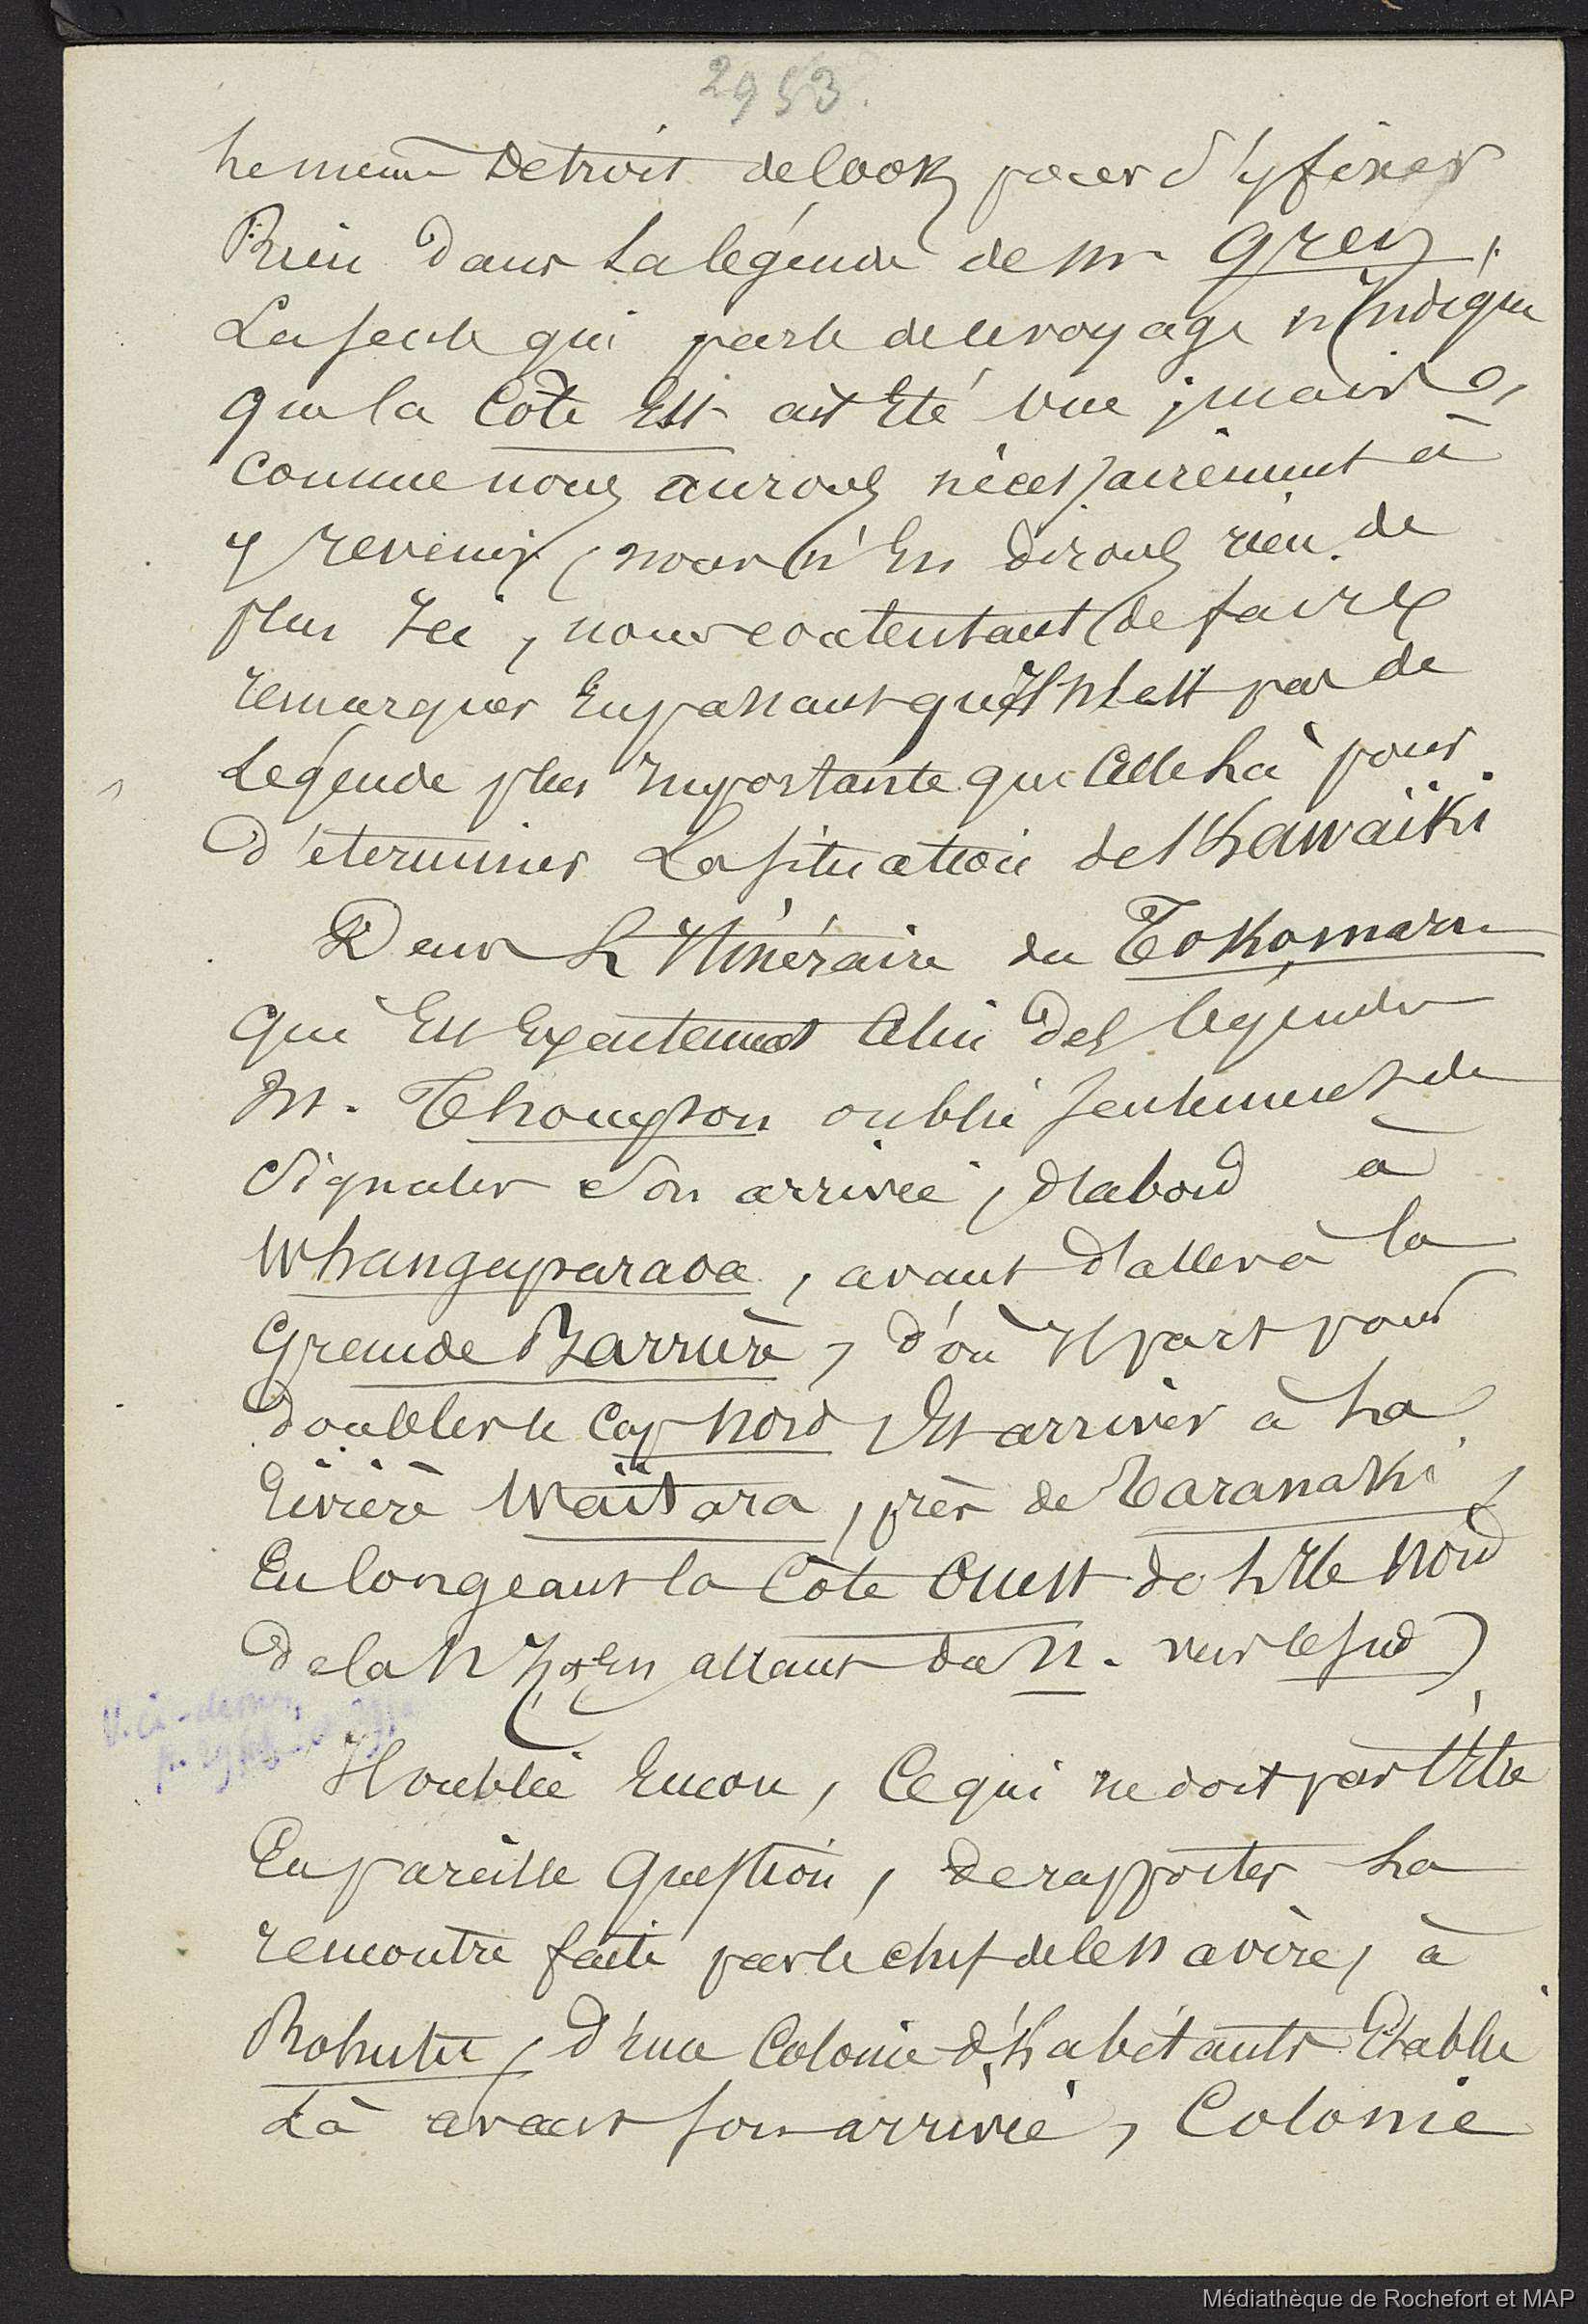 2953.
le même Détroit de Cook pour s'y fixer
Rien dans la légende de Mr Grey,
La seule qui parle de ce voyage n'Indique
que la Côte Est ait Eté vue ; mais
comme nous aurons nécessairement à
y revenir, nous n'En dirons rien de
plus Ici, nous contentant de faire
remarquer En passant qu'Il n'est pas de
Légende plus Importante que Celle là pour
déterminer La situation de l'hawaïki.
Dans L'Itinéraire du Tokomaru
qui Est Exactement Celui des légendes
M. Thompson oublie seulement de
signaler son arrivée, d'abord à
Whangaparaoa, avant d'aller à la
Grande Barrière, d'où Il part pour
doubler le Cap Nord, Et arriver à La
rivière Waïtara, près de Taranaki,
En longeant la Côte Ouest de L'Ile Nord
de la N Z. (En allant du N. vers le sud)
V. ci-dessus,
Il oublie Encore, Ce qui ne doit pas l'Etre
En pareille question, de rapporter La
rencontre faite par le chef de ce navire, à
Rohutu, d'une Colonie d'habitants Etablie
Là avant son arrivée, Colonie
Médiathèque de Rochefort et MAP